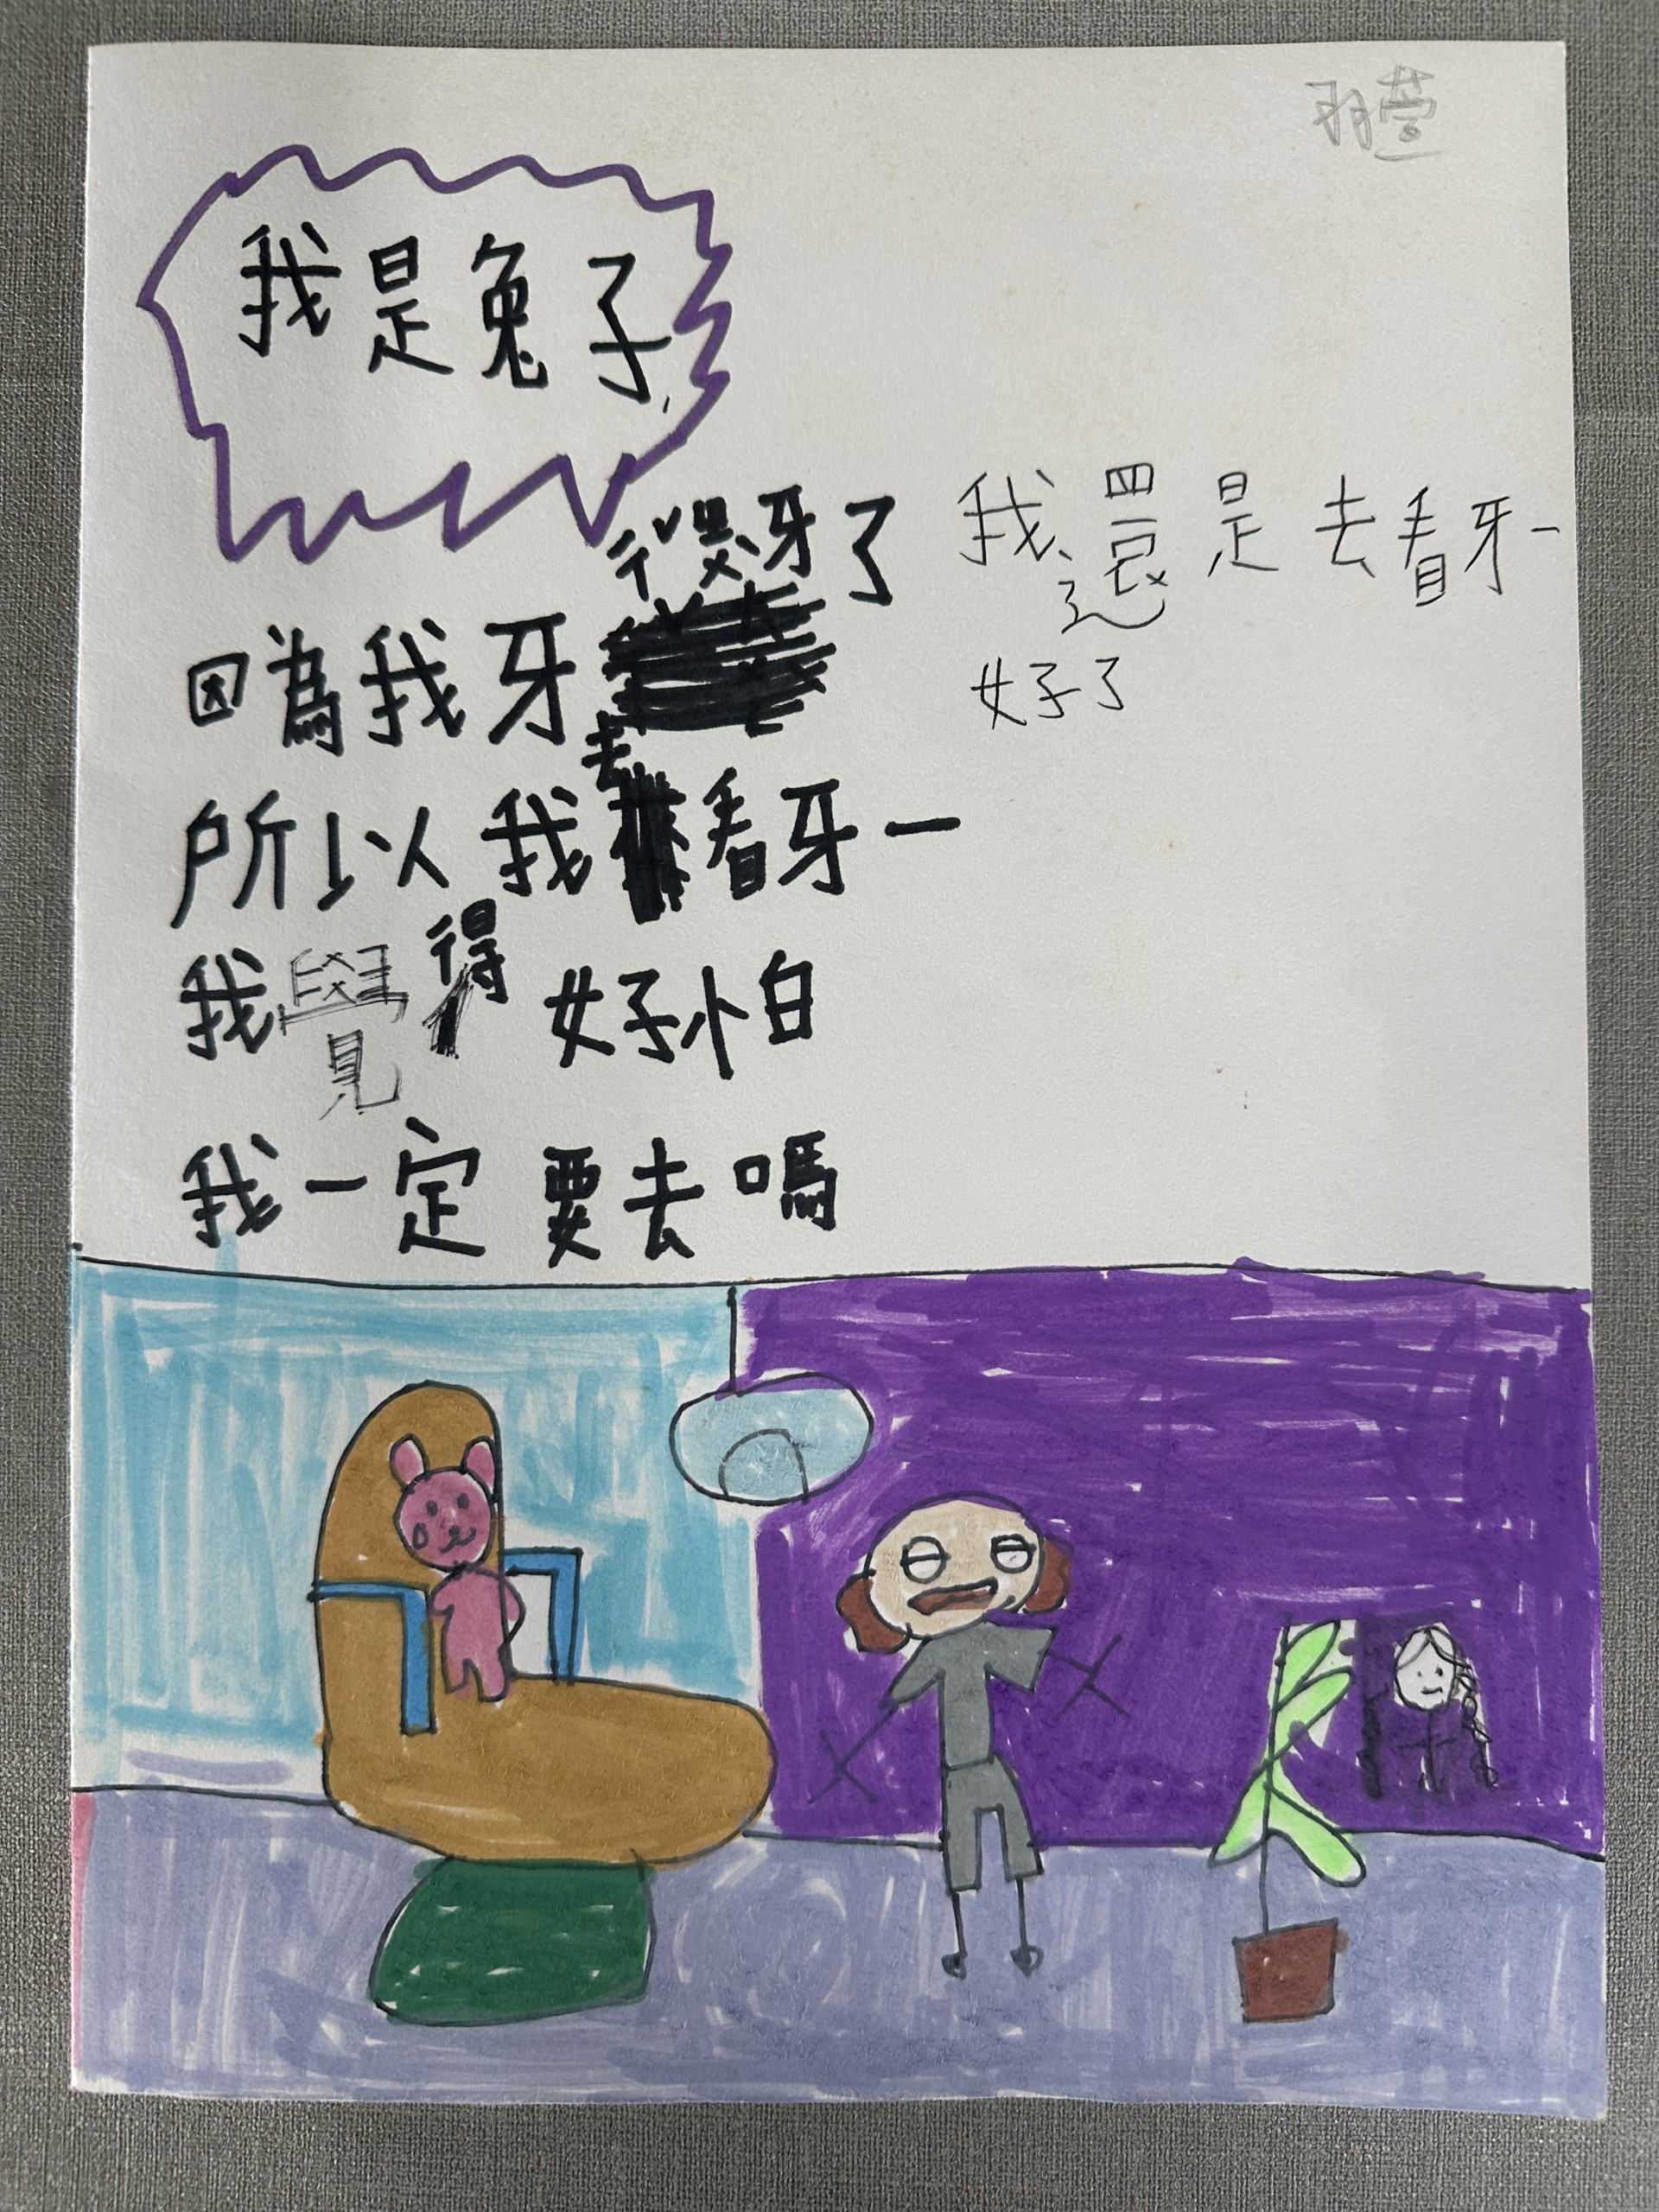 羽萱
我是兔子
牙了
因為我牙
所以我去看牙一
我覺得好怕
我一定要去嗎
我還是去看牙一
好了